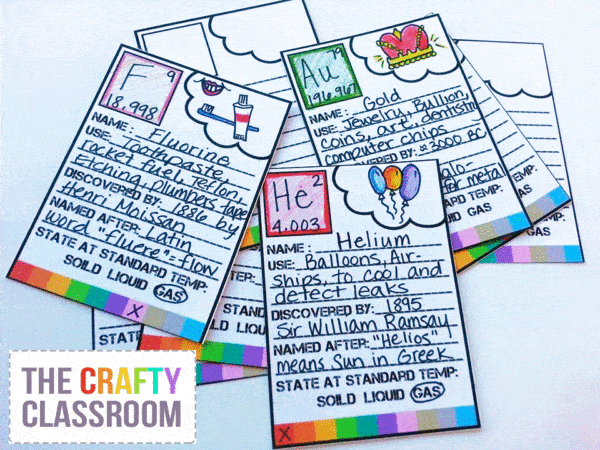 F 9
18.998
NAME: Fluorine
USE: Toothpaste,
rocket fuel, Teflon,
Etching, plumbers Tape
DISCOVERED BY: 1886 by
Henri Moissan
NAMED AFTER: Latin
word "fluere"=flow
STATE AT STANDARD TEMP:
SOILD LIQUID GAS
X
Au 79
196.967
Gold
NAME:
USE: Jewelry, Bullion,
coins, art, dentistry
computer chips
DISCOVERED BY: ≈3000 BC
for metal
TEMP:
GAS
He 2
4.003
NAME: Helium
USE: Balloons, Air-
ships, to cool and
detect leaks
DISCOVERED BY: 1895
Sir William Ramsay
NAMED AFTER: "Helios"
means Sun in Greek
STATE AT STANDARD TEMP:
SOILD LIQUID GAS
X
STATE
SOILD LIQU
THE CRAFTY
CLASSROOM